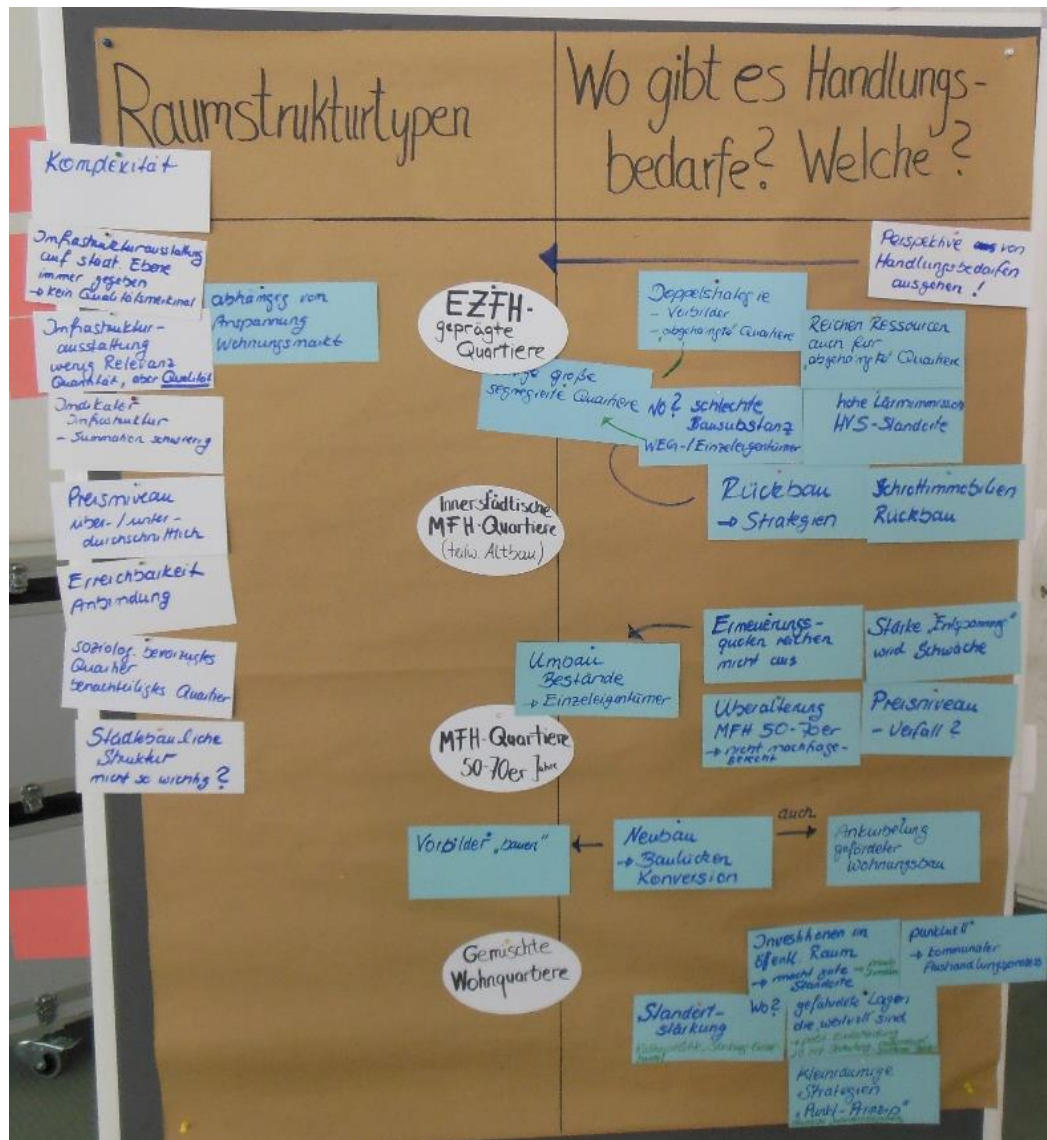 Raumstrukturtypen
Wo gibt es Handlungs-
bedarfe? Welche?
Komplexität
Infrastrukturausstattung
auf staat. Ebene
immer gegeben
→ kein Qualitätsmerkmal
Infrastruktur-
ausstattung
wenig Relevanz
Quantität, aber Qualität
Indikator
Infrastruktur
- Summation schwierig
Preisniveau
über-/unter-
durchschnittlich
Erreichbarkeit
Anbindung
soziolog. bevorzugtes
Quartier
benachteiligtes Quartier
Städtebauliche
Struktur
nicht so wichtig?
abhängig von
Anspannung
Wohnungsmarkt
EZFH-
geprägte
Quartiere
Innerstädtische
MFH-Quartiere
(teilw. Altbau)
MFH-Quartiere
50-70er Jahre
Gemischte
Wohnquartiere
Perspektive von
Handlungsbedarfen
ausgehen!
Doppelstrategie
- Vorbilder
- "abgehängte" Quartiere
Reichen Ressourcen
auch für
"abgehängte" Quartiere
große
segregierte Quartiere
Wo? schlechte
Bausubstanz
WEG-/Einzeleigentümer
hohe Lärmimmission
HVS-Standorte
Rückbau
→ Strategien
Schrottimmobilien
Rückbau
Erneuerungs-
quoten reichen
nicht aus
Stärke "Entspannung"
wird Schwäche
Umbau
Bestände
→ Einzeleigentümer
Überalterung
MFH 50-70er
→ nicht nachfrage-
gerecht
Preisniveau
- Verfall?
Vorbilder "bauen"
Neubau
→ Baulücken
Konversion
auch
Ankurbelung
geförderter
Wohnungsbau
Investitionen in
öffentl. Raum
→ macht gute
Standorte
punktuell
→ kommunaler
Aushandlungsprozess
Standort-
stärkung
Wo? gefährdete Lagen
die wertvoll sind
Kleinräumige
Strategien
"Punkt-Prinzip"